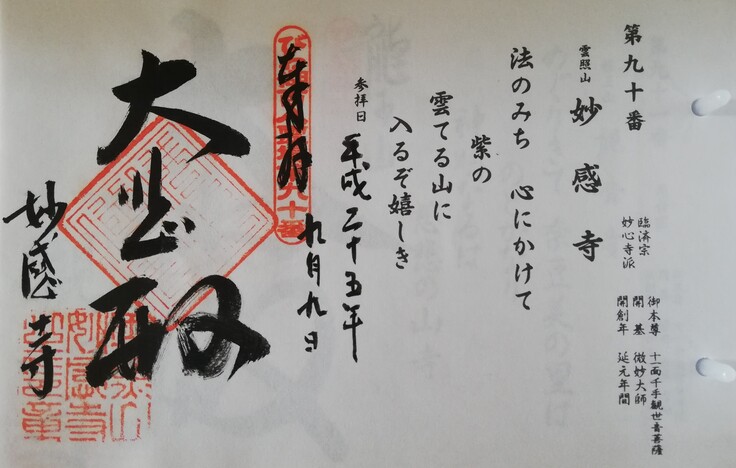 第九十番
雲照山 妙感寺
臨済宗
妙心寺派
御本尊 十一面千手観世音菩薩
開基 微妙大師
開創年 延元年間
法のみち 心にかけて
紫の
雲てる山に
入るぞ嬉しき
参拝日 平成二十五年
九月九日
奉拝
大悲殿
妙感寺